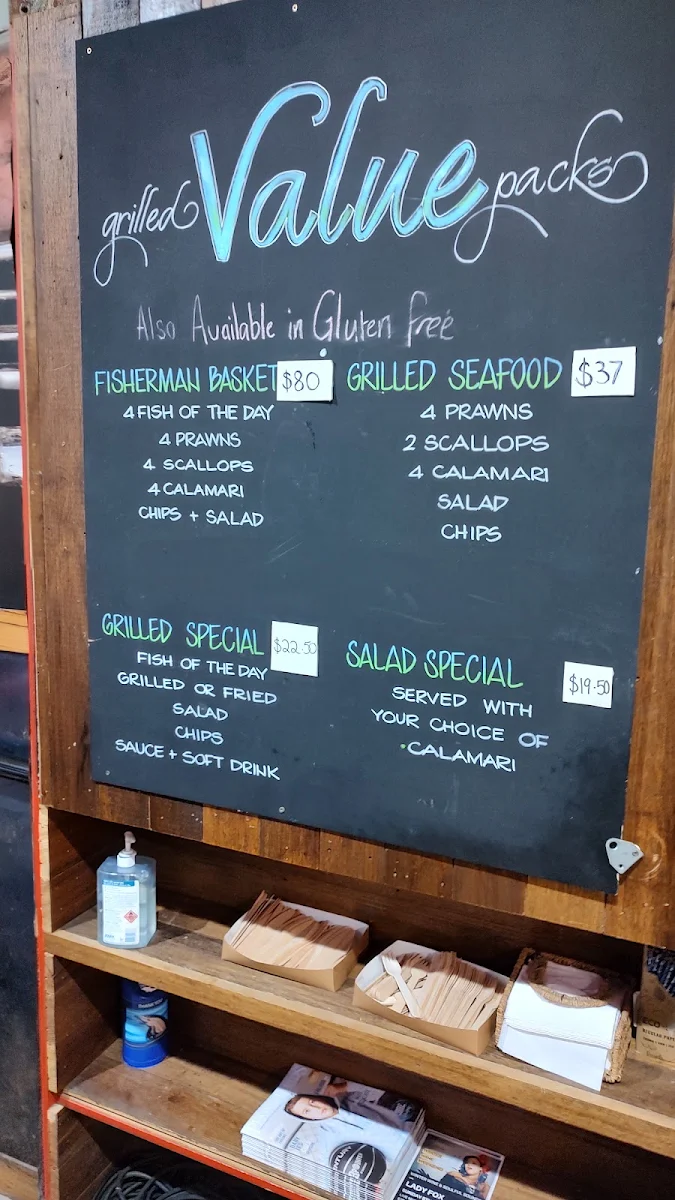 grilled Value packs
Also Available in Gluten free
FISHERMAN BASKET $80
4 FISH OF THE DAY
4 PRAWNS
4 SCALLOPS
4 CALAMARI
CHIPS + SALAD
GRILLED SEAFOOD $37
4 PRAWNS
2 SCALLOPS
4 CALAMARI
SALAD
CHIPS
GRILLED SPECIAL $22.50
FISH OF THE DAY
GRILLED OR FRIED
SALAD
CHIPS
SAUCE + SOFT DRINK
SALAD SPECIAL $19.50
SERVED WITH
YOUR CHOICE OF
•CALAMARI
ECO
LADY FOX